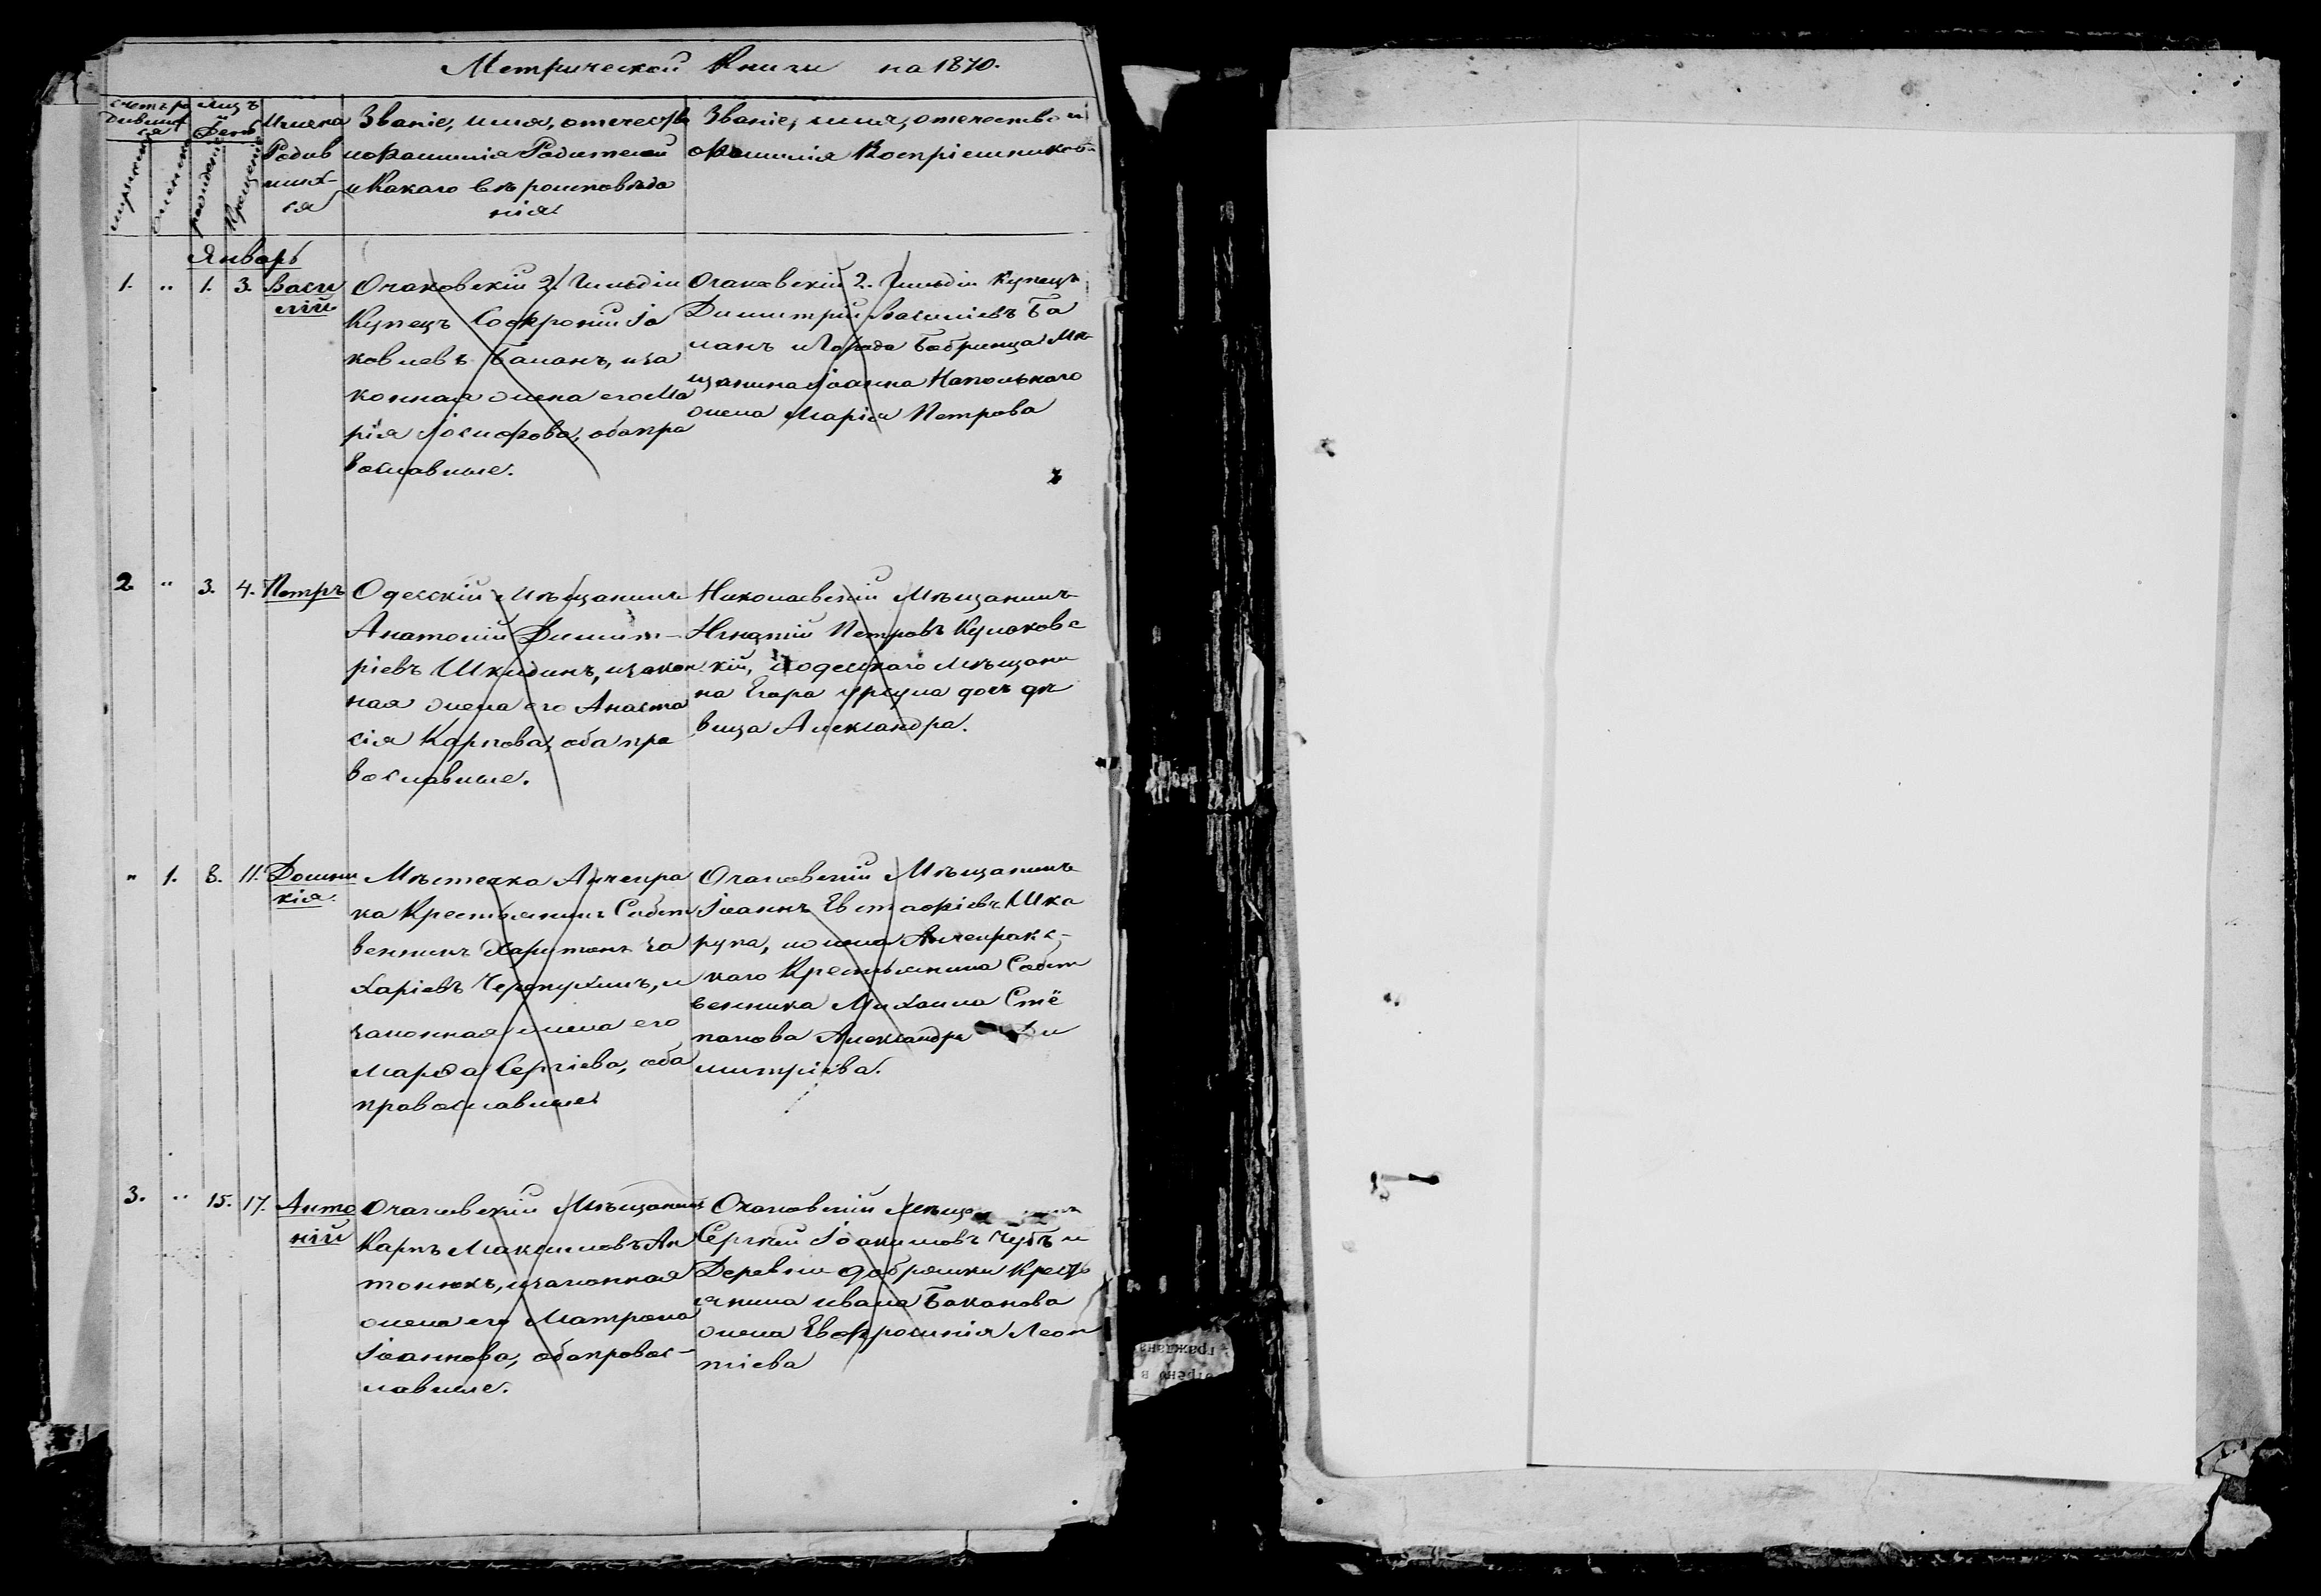 Метрической Книги на 1870.
Счетъ ро
дивших
ся
Мѣц ъ
и
День
мужеска
женска
рожденія
Крещенія
Имена
Родив
шихъ-
ся
Званіе, имя, отчество
и фамилія Родителей
и Какаго вѣроисповѣда
нія
Званіе, имя, отчество и
фамилія Воспріемниковъ
Январь
1. " 1. 3. Васи
лій
Очаковскій 2. Гильдіи
Купецъ Софроній Іа
ковлевъ Баланъ, и за
конная жена его Ма
рія Іосифова, оба пра
вославные.
Очаковскій 2. Гильдіи Купецъ
Димитрій Василіевъ Ба
ланъ и Города Бобринца Мѣ
щанина Іоанна Напольнаго
жена Марія Петрова
2. " 3. 4. Петръ
Одесскій Мѣщанинъ
Анатолій Димит-
ріевъ Шкидинъ, и закон
ная жена его Анаста
сія Карпова, оба пра
вославные.
Николаевскій Мѣщанинъ
Петровъ Кулаковс
кій, и одесскаго Мѣщани
на Егора дочь дѣ
вица Александра.
" 1. 8. 11. Домни
кія.
Мѣстечка Анчекра
ка Крестьянинъ Собст
венникъ Харитонъ За
харіевъ Черепухинъ, и
законная жена его
Марѳа Сергіева, оба
православные
Очаковскій Мѣщанинъ
Іоаннъ Евстафіевъ Шка
рупа, и жена Анчекракс-
каго Крестьянина Собст
венника Михаила Сте
панова Александра Ди
митріева.
3. " 15. 17. Анто
ній
Очаковскій Мѣщанинъ
Карпъ Максимовъ Ан
тонюкъ, и законная
жена его Матрона
Іоаннова, оба правос-
лавные.
Очаковскій Мѣща
Сергій Іоакимовъ Чубъ и
Деревни Добрянки Кресть
янина Ивана Баканова
жена Евфросинія Леон
тіева